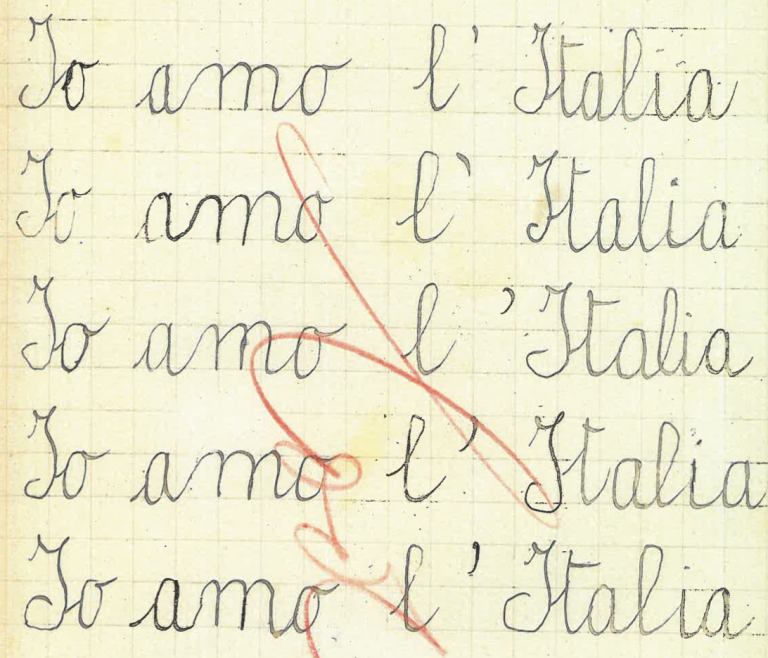 Io amo l' Italia
Io amo l' Italia
Io amo l 'Italia
Io amo l' Italia
Io amo l 'Italia